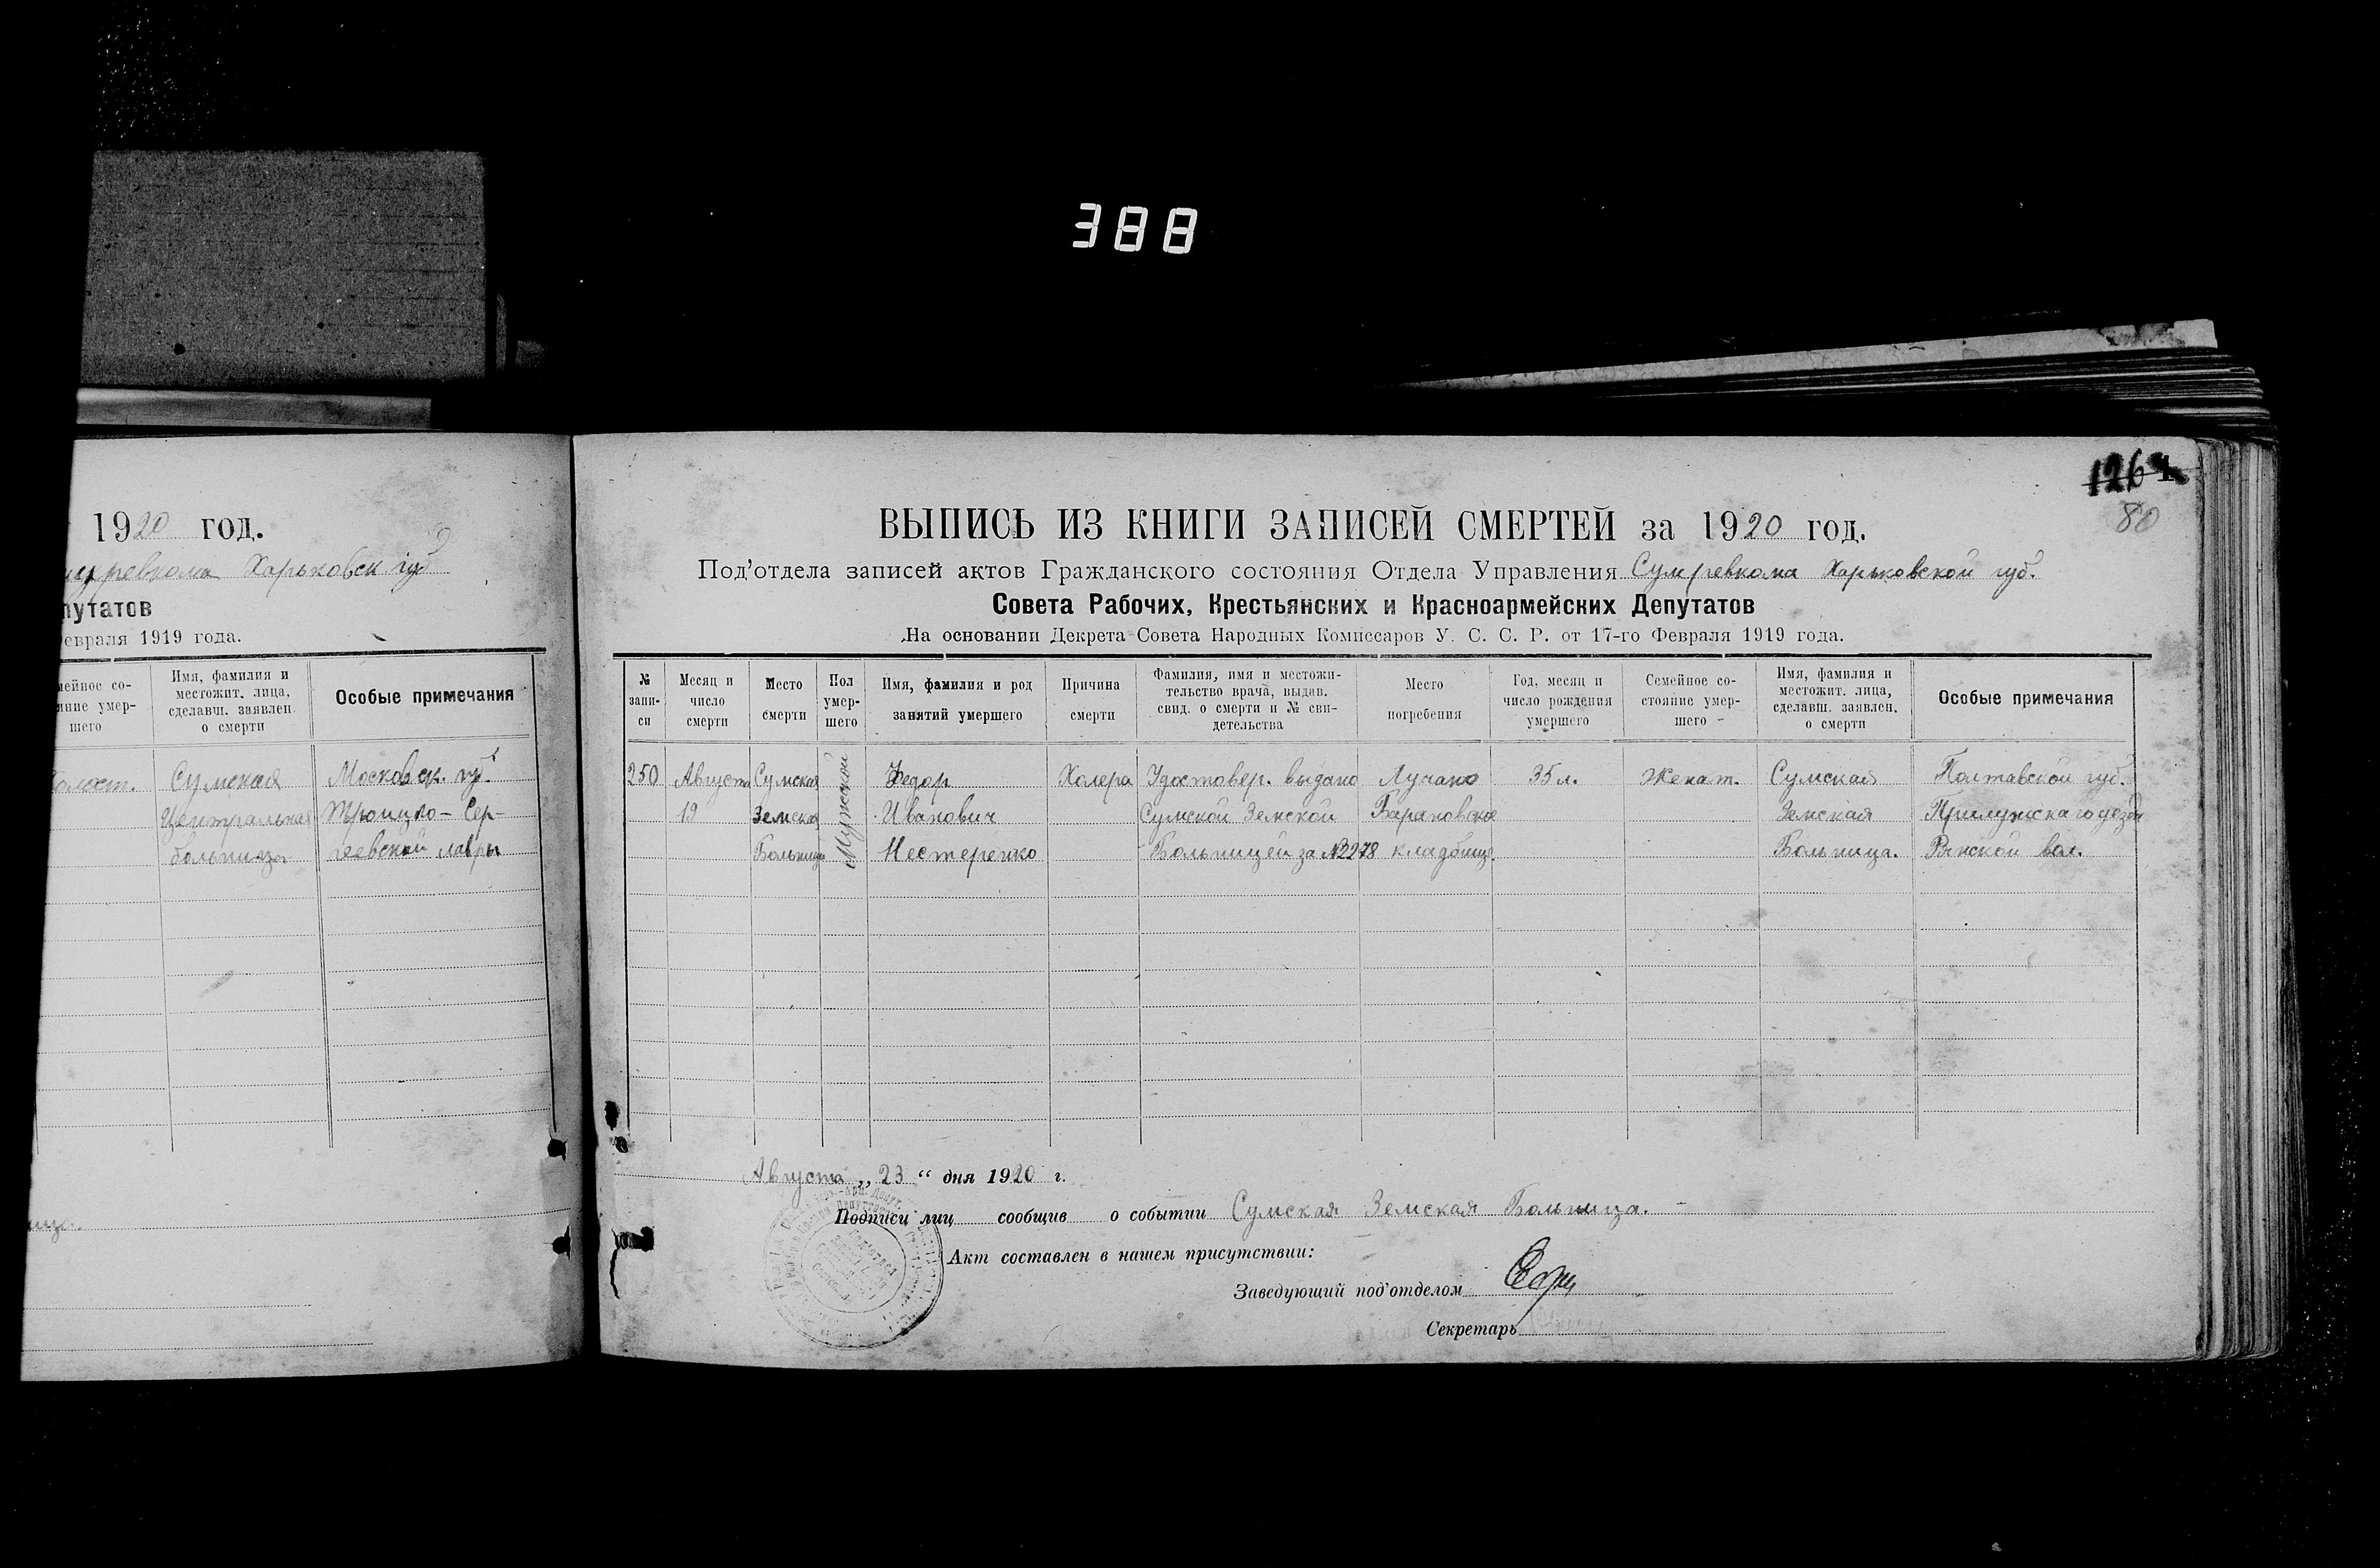 388
1920 год.
Харьковск губ
путатов
евраля 1919 года.
мейное со-
яние умер-
шего
Имя, фамилия и
местожит. лица,
сделавш. заявлен.
о смерти
Особые примечания
Сумская
Центральная
больница
Московск. губ.
Троицко-Сер-
геевской лавры
1264
80
ВЫПИСЬ ИЗ КНИГИ ЗАПИСЕЙ СМЕРТЕЙ за 1920 год.
Под'отдела записей актов Гражданского состояния Отдела Управления Сумревкома Харьковской губ.
Совета Рабочих, Крестьянских и Красноармейских Депутатов
На основании Декрета Совета Народных Комиссаров У. С. С. Р. от 17-го Февраля 1919 года.
№
запи-
си
Месяц и
число
смерти
Место
смерти
Пол
умер-
шего
Имя, фамилия и род
занятий умершего
Причина
смерти
Фамилия, имя и местожи-
тельство врача, выдав.
свид. о смерти и № сви-
детельства
Место
погребения
Год, месяц и
число рождения
умершего
Семейное со-
стояние умер-
шего
Имя, фамилия и
местожит. лица,
сделавш. заявлен.
о смерти
Особые примечания
250
Августа
19
Сумская
Земская
Больница
Мужской
Федор
Иванович
Нестеренко
Холера
Удостовер. выдано
Сумской Земской
Больницей за №2278
Лучано
Барановское
кладбище
35 л.
Женат.
Сумская
Земская
Больница.
Полтавской губ.
Прилужскаго уезда
Рянской вол.
Августа „23“ дня 1920 г.
Подписи лиц сообщив о событии Сумская Земская Больница.
Акт составлен в нашем присутствии:
Заведующий под'отделом
Секретарь